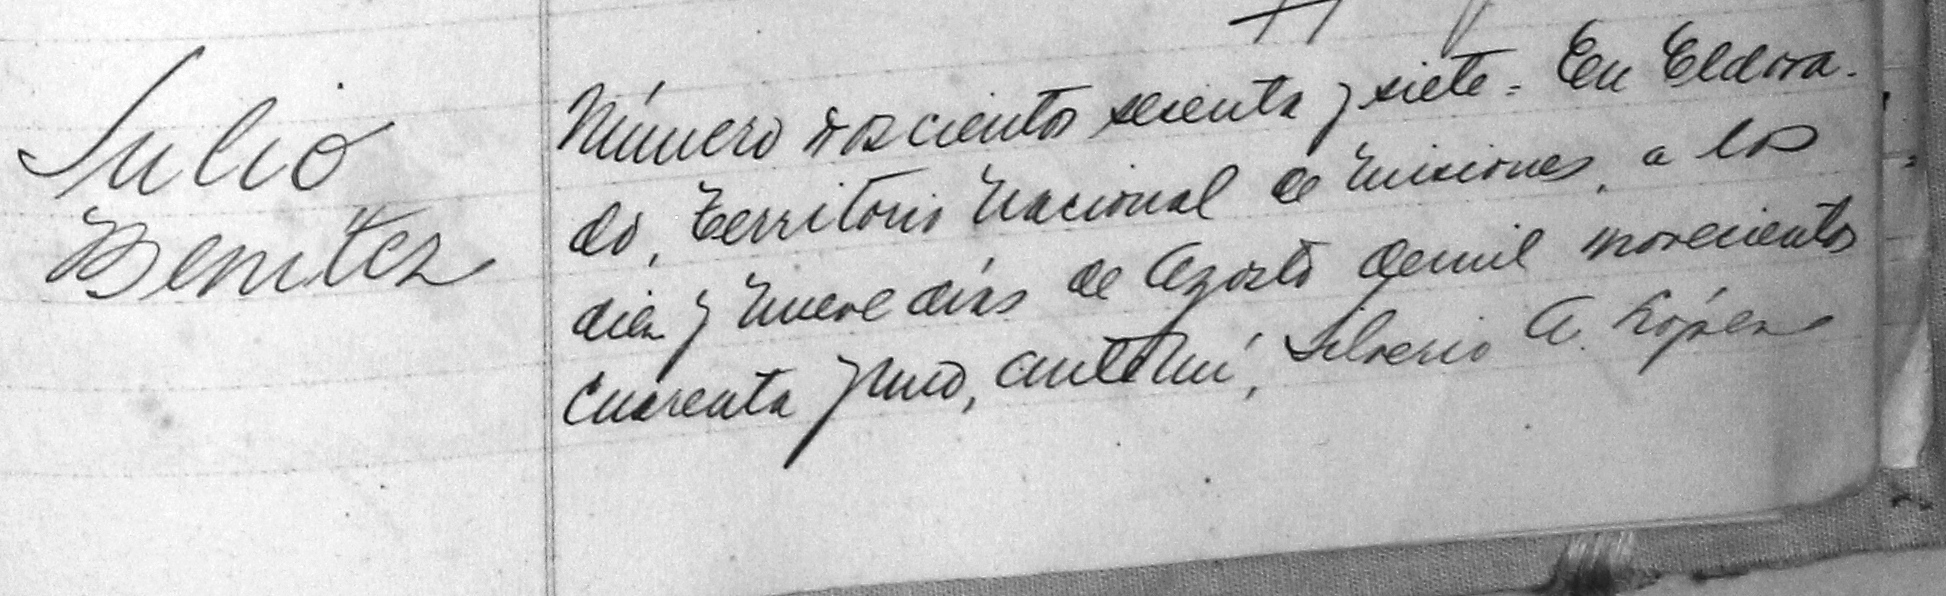 Julio
Benitez
Número doscientos sesenta y siete = En Eldora-
do, Territorio Nacional de Misiones, a los
diez y nueve días de Agosto de mil novecientos
cuarenta y uno, ante mí, Silverio A. López